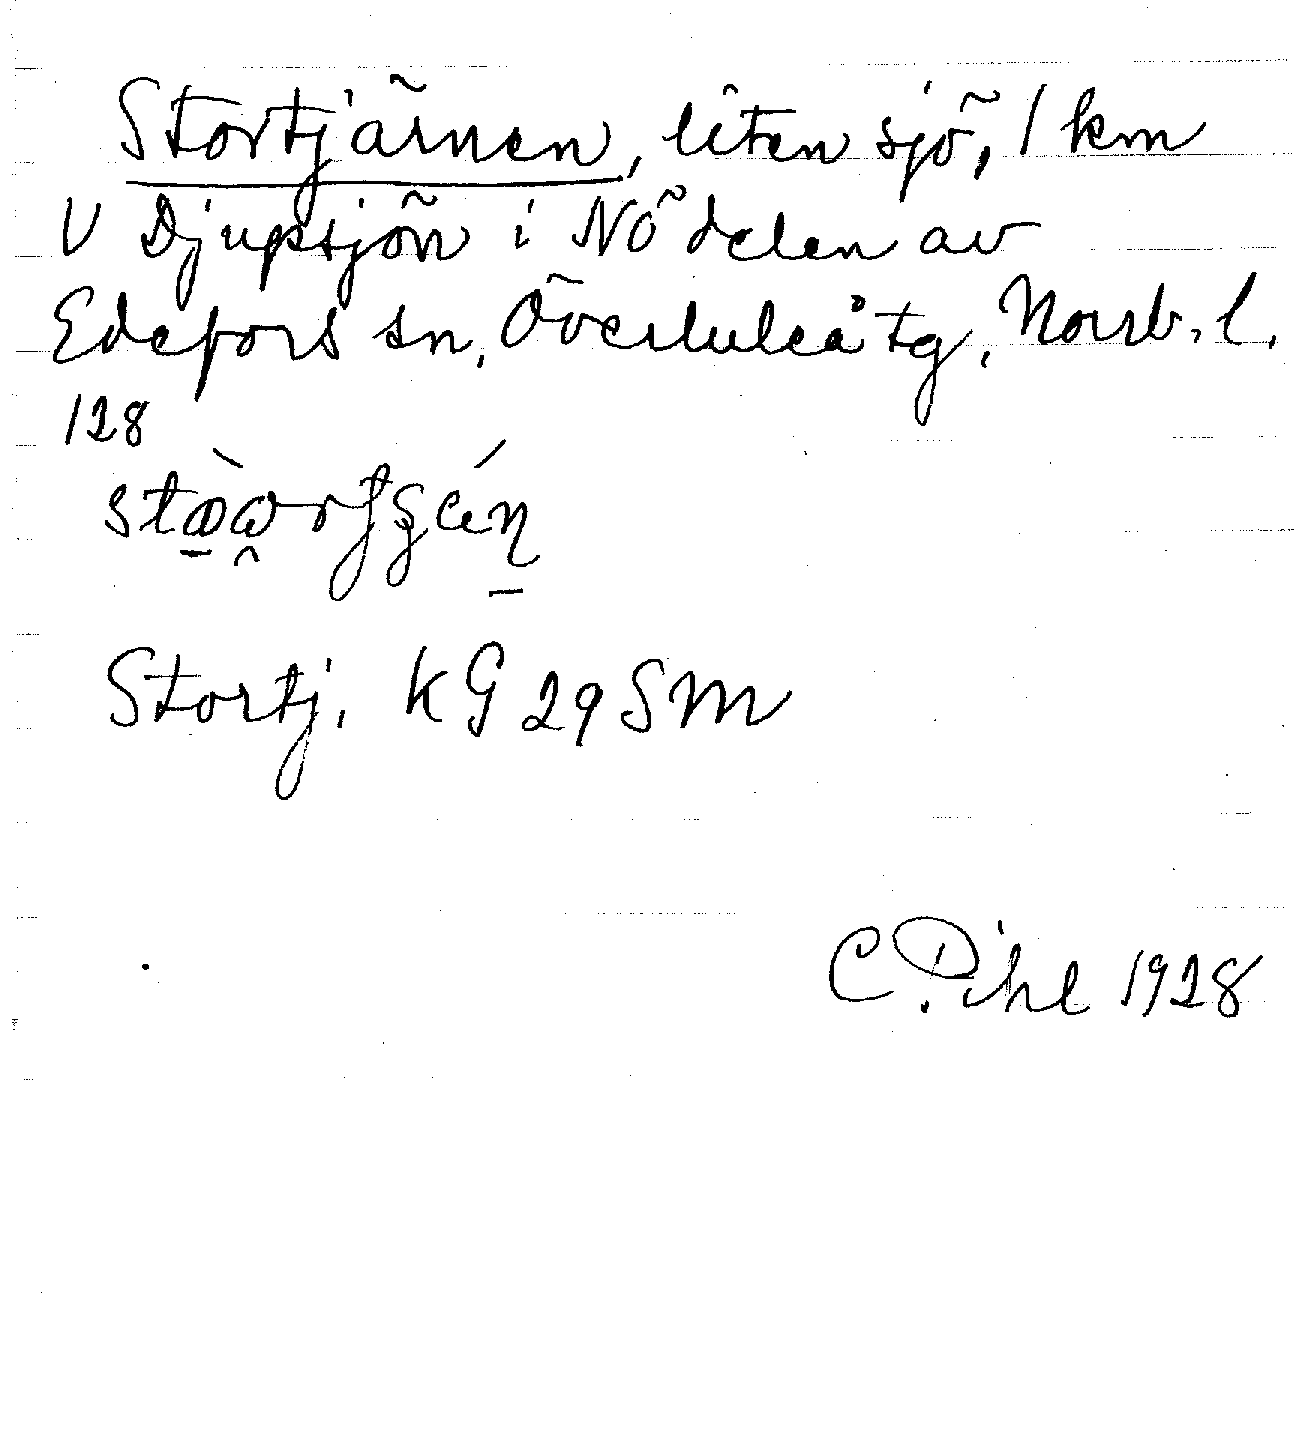 Stortjärnen, liten sjö, 1 km
V Djupsjön i NÖ delen av
Edefors sn, Överluleå tg, Norrb. l.
128
Stortj. KG 29 SM
C. Pihl 1928